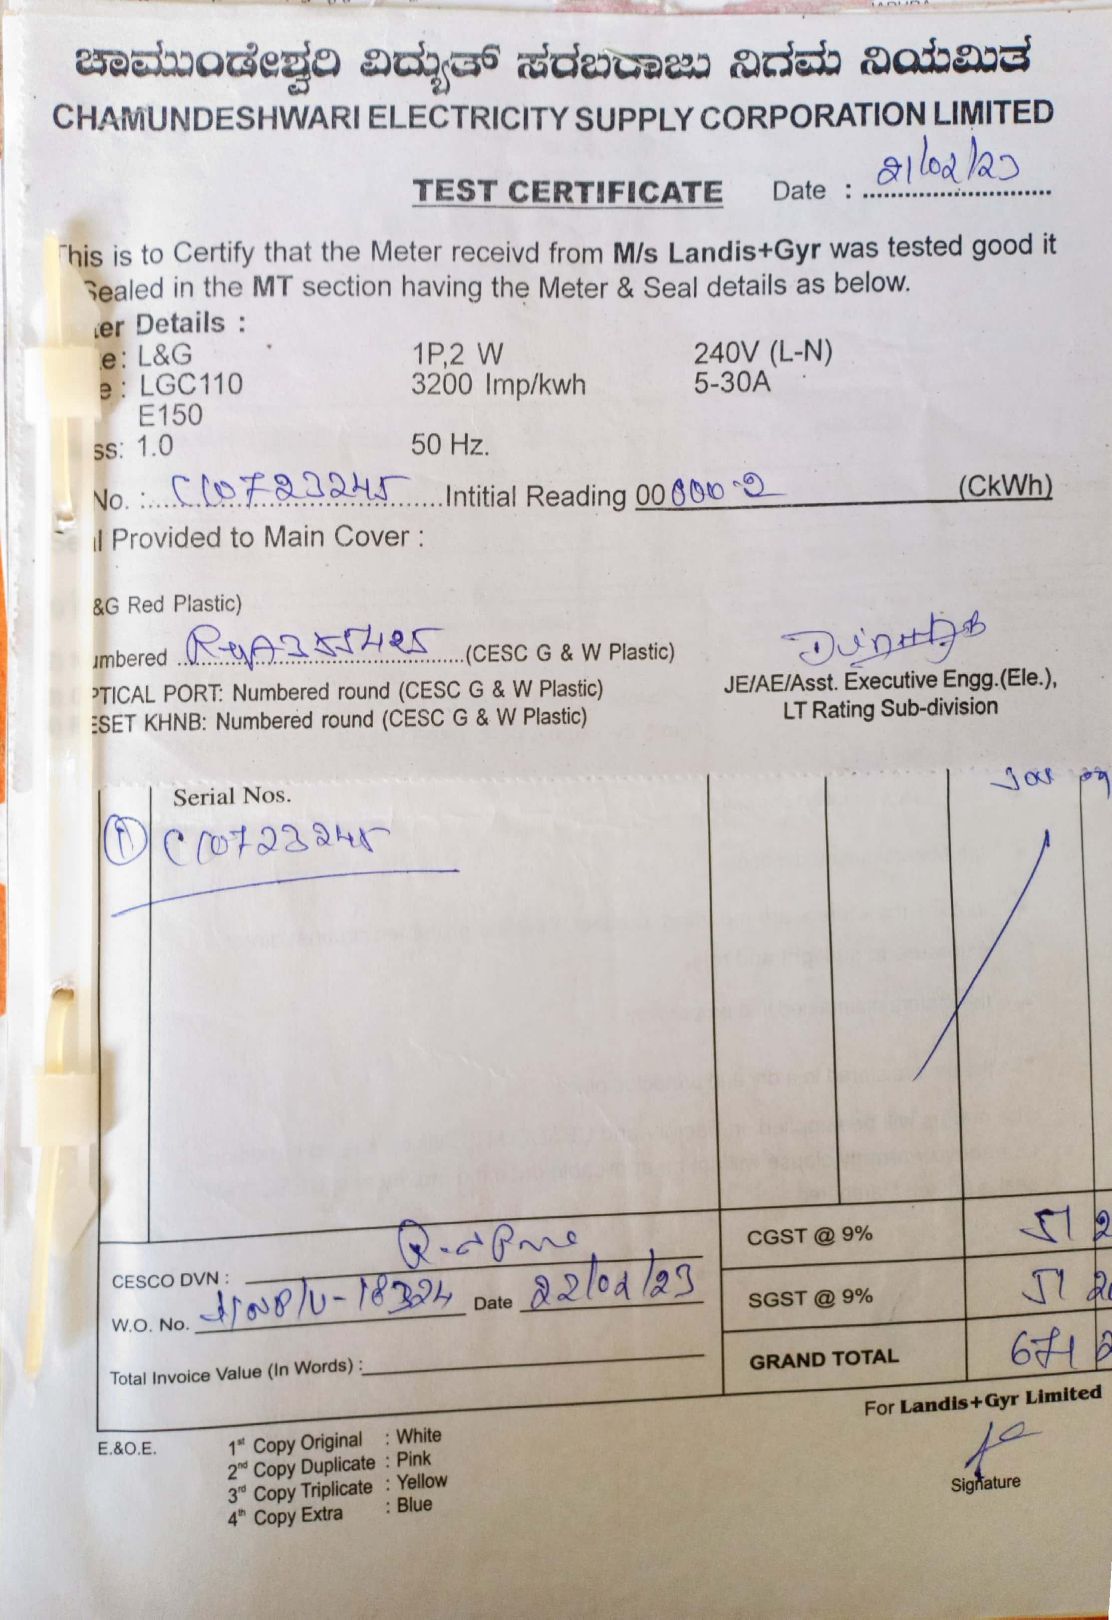 ಚಾಮುಂಡೇಶ್ವರಿ ವಿದ್ಯುತ್ ಸರಬರಾಜು ನಿಗಮ ನಿಯಮಿತ
CHAMUNDESHWARI ELECTRICITY SUPPLY CORPORATION LIMITED
21/02/23
TEST CERTIFICATE Date :
This is to Certify that the Meter receivd from M/s Landis+Gyr was tested good it
Sealed in the MT section having the Meter & Seal details as below.
er Details :
e: L&G 1P,2 W 240V (L-N)
e : LGC110 3200 Imp/kwh 5-30A
E150
ss: 1.0 50 Hz.
No. : C10723245 Intitial Reading 00000.2 (CkWh)
l Provided to Main Cover :
&G Red Plastic)
umbered (CESC G & W Plastic)
PTICAL PORT: Numbered round (CESC G & W Plastic) JE/AE/Asst. Executive Engg.(Ele.),
ESET KHNB: Numbered round (CESC G & W Plastic) LT Rating Sub-division
Serial Nos.
1 C10723245
CGST @ 9% 51 2
CESCO DVN :
W.O. No. Date 22/02/23 SGST @ 9% 51
Total Invoice Value (In Words) : GRAND TOTAL 671 2
For Landis+Gyr Limited
E.&O.E. 1st Copy Original : White
2nd Copy Duplicate : Pink
3rd Copy Triplicate : Yellow
4th Copy Extra : Blue
Signature